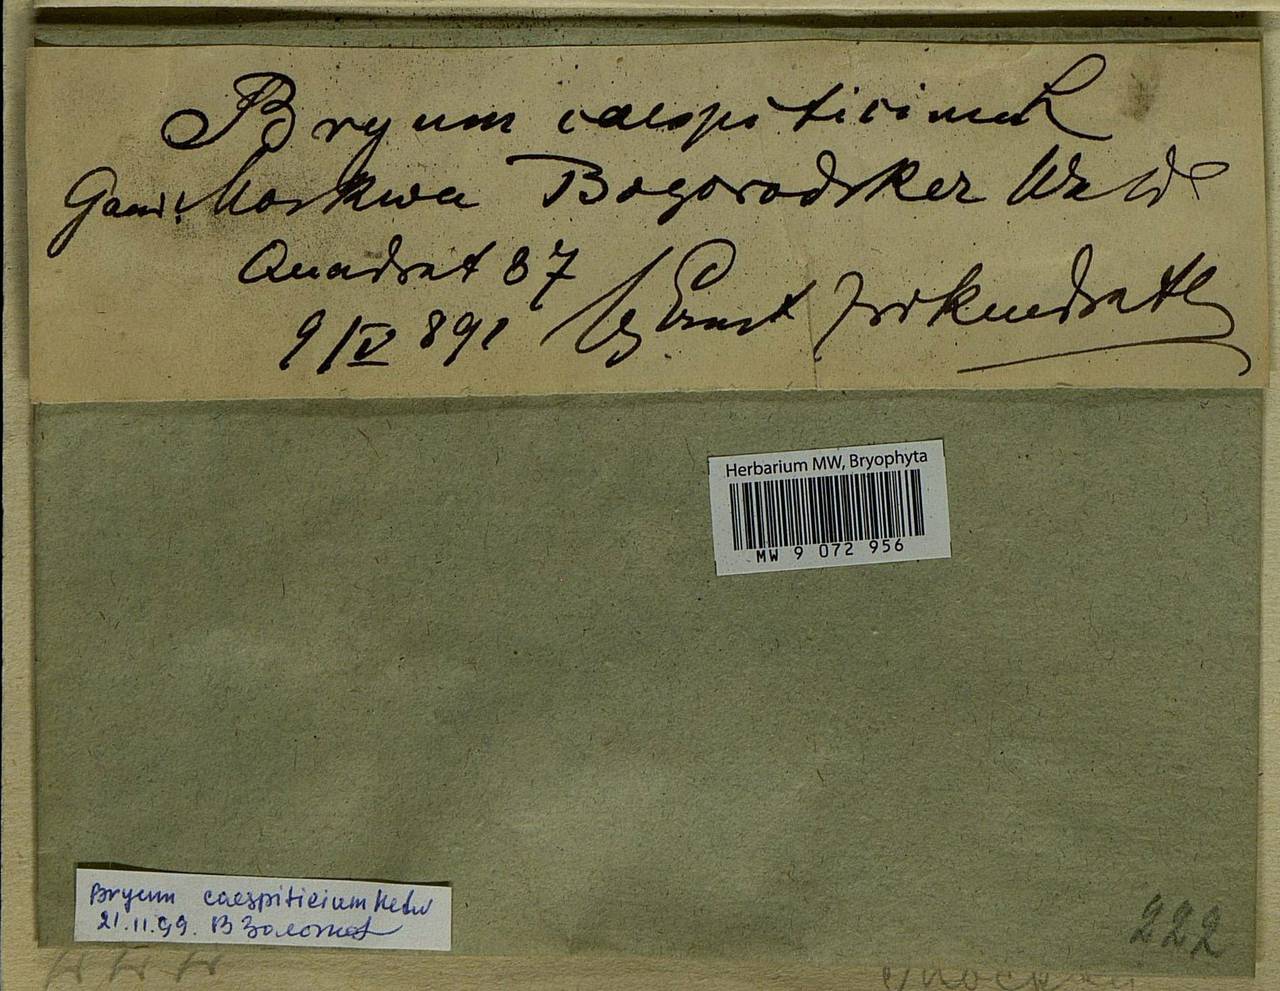 Bryum caespiticium L
Gouv. Moskwa Bogorodsker Wald
Quadrat 37
9/IV 891 leg Ernst Zickendrath
Herbarium MW, Bryophyta
MW 9 072 956
Bryum caespiticium Hedw
21.11.99. В Золотов
222